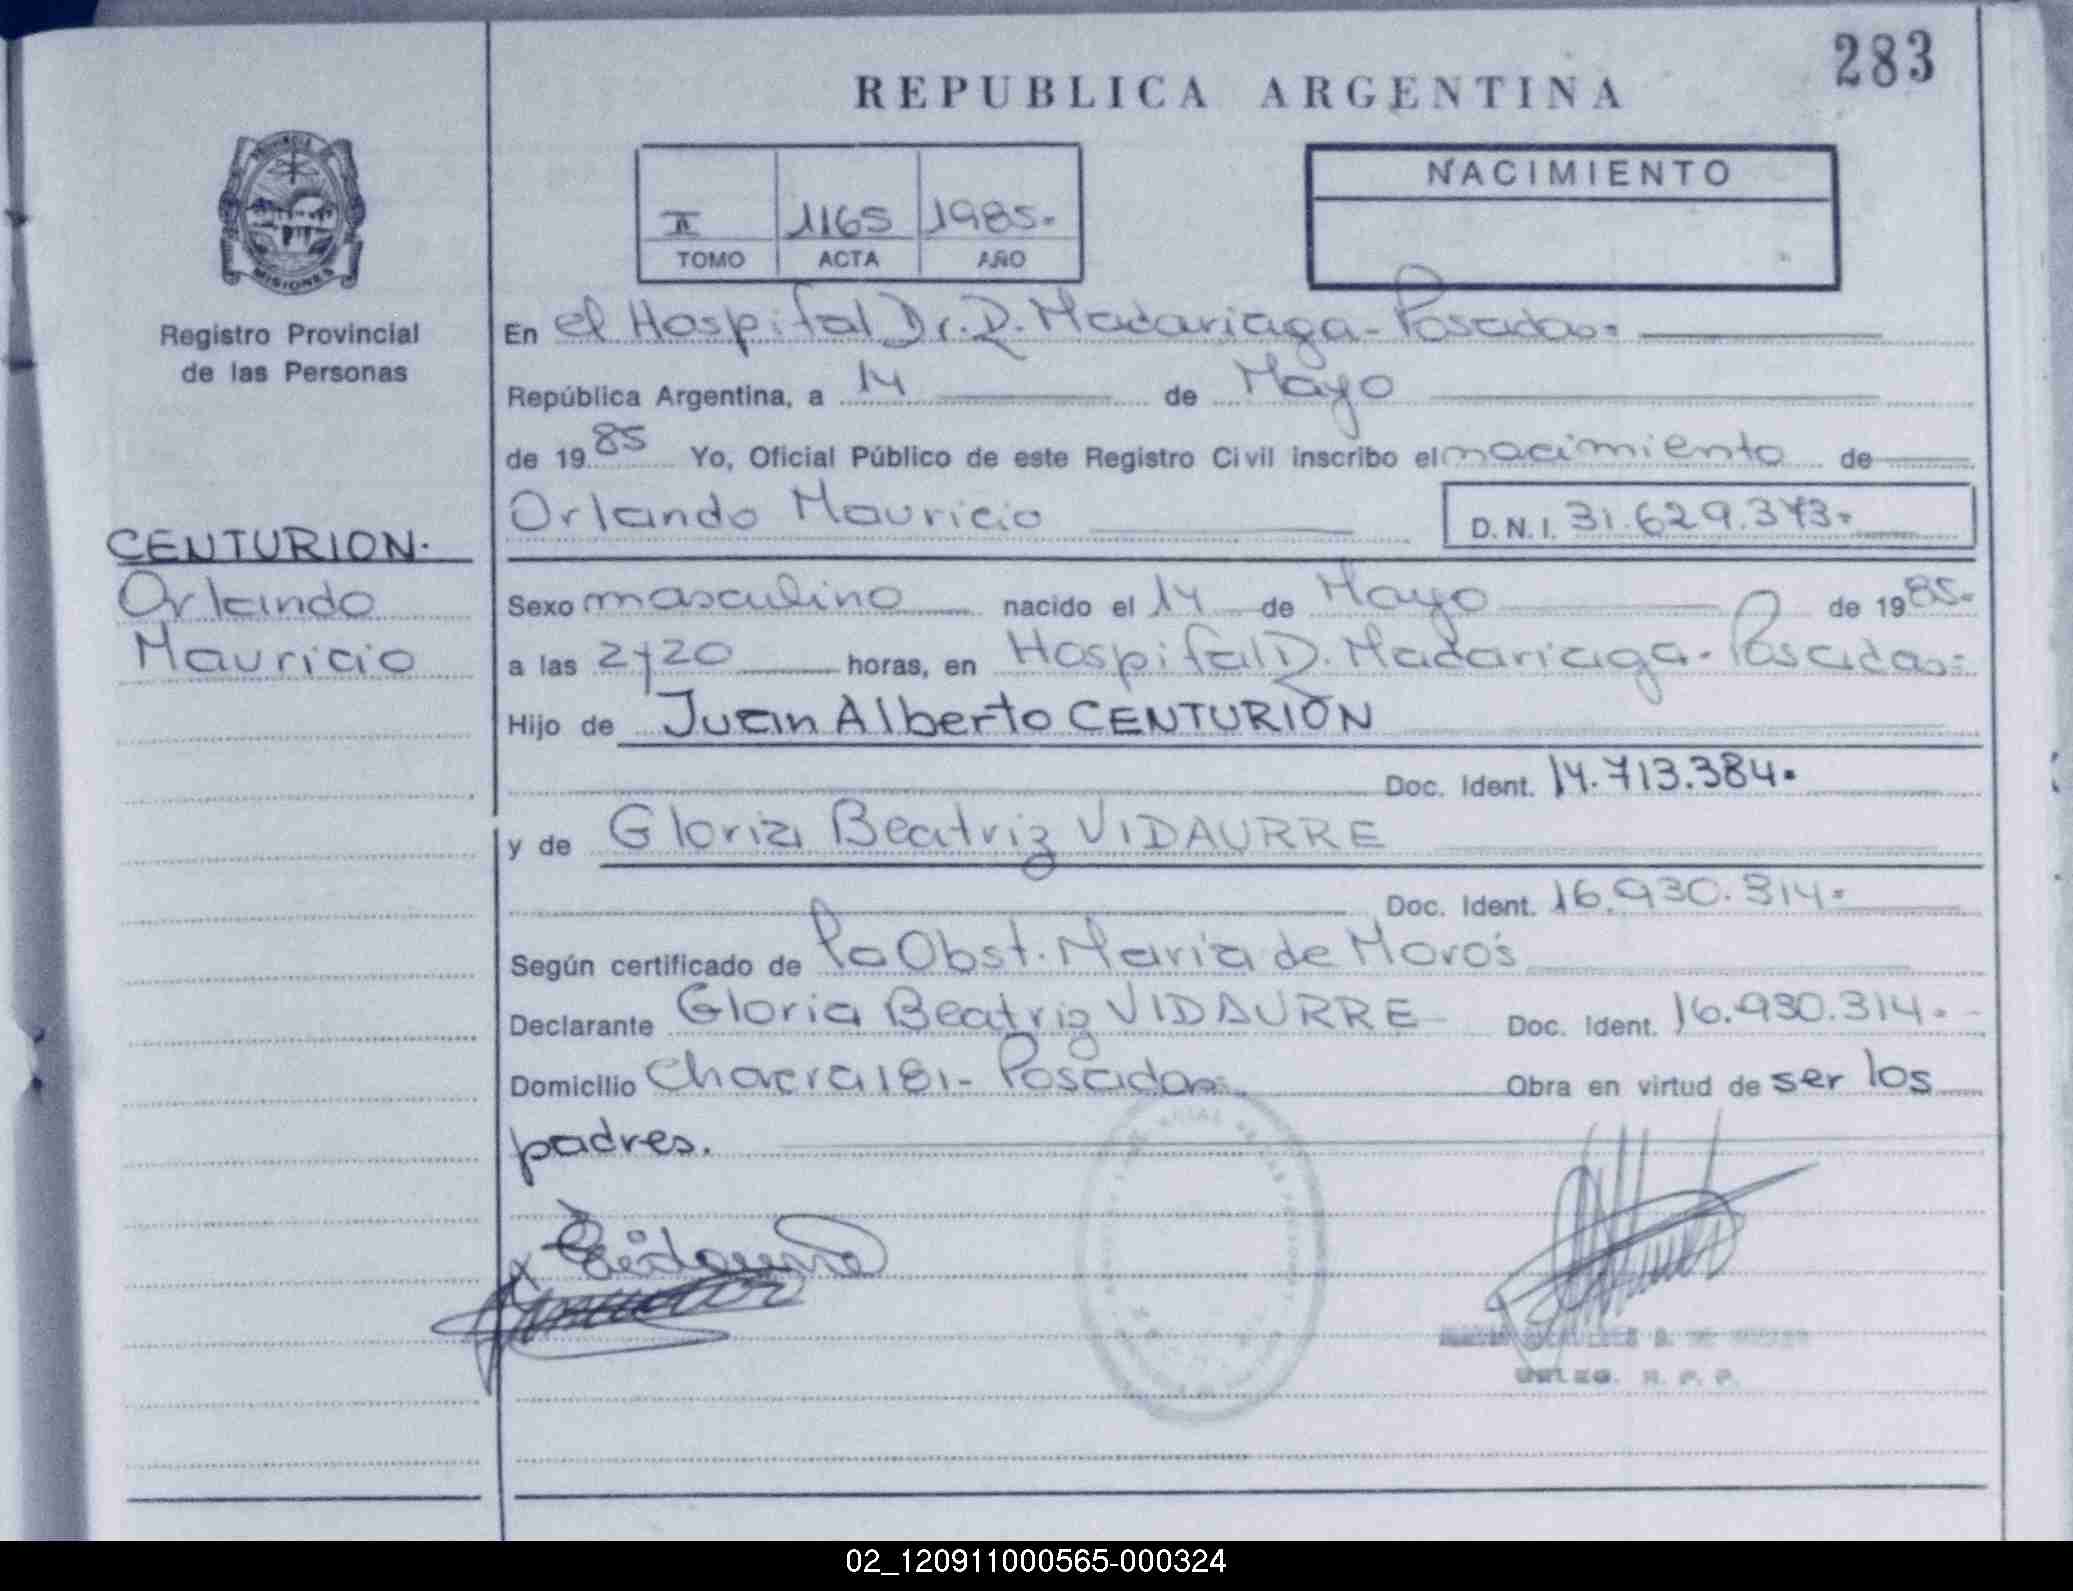 283
REPUBLICA ARGENTINA
PROVINCIA DE
MISIONES
Registro Provincial
de las Personas
II 1165 1985.
TOMO ACTA AÑO
NACIMIENTO
En el Hospital Dr. R. Madariaga - Posadas.
República Argentina, a 14 de Mayo
de 1985 Yo, Oficial Público de este Registro Civil inscribo el nacimiento de
Orlando Mauricio D.N.I. 31.629.373.
CENTURION.
Orlando
Mauricio
Sexo masculino nacido el 14 de Mayo de 1985.
a las 2y20 horas, en Hospital R. Madariaga - Posadas.
Hijo de Juan Alberto CENTURIÓN
Doc. Ident. 14.713.384.
y de Gloria Beatriz VIDAURRE
Doc. Ident. 16.930.314.
Según certificado de la Obst. María de Moros
Declarante Gloria Beatriz VIDAURRE Doc. Ident. 16.930.314.
Domicilio Chacra 181 - Posadas. Obra en virtud de ser los
padres.
R. P. P.
02_120911000565-000324